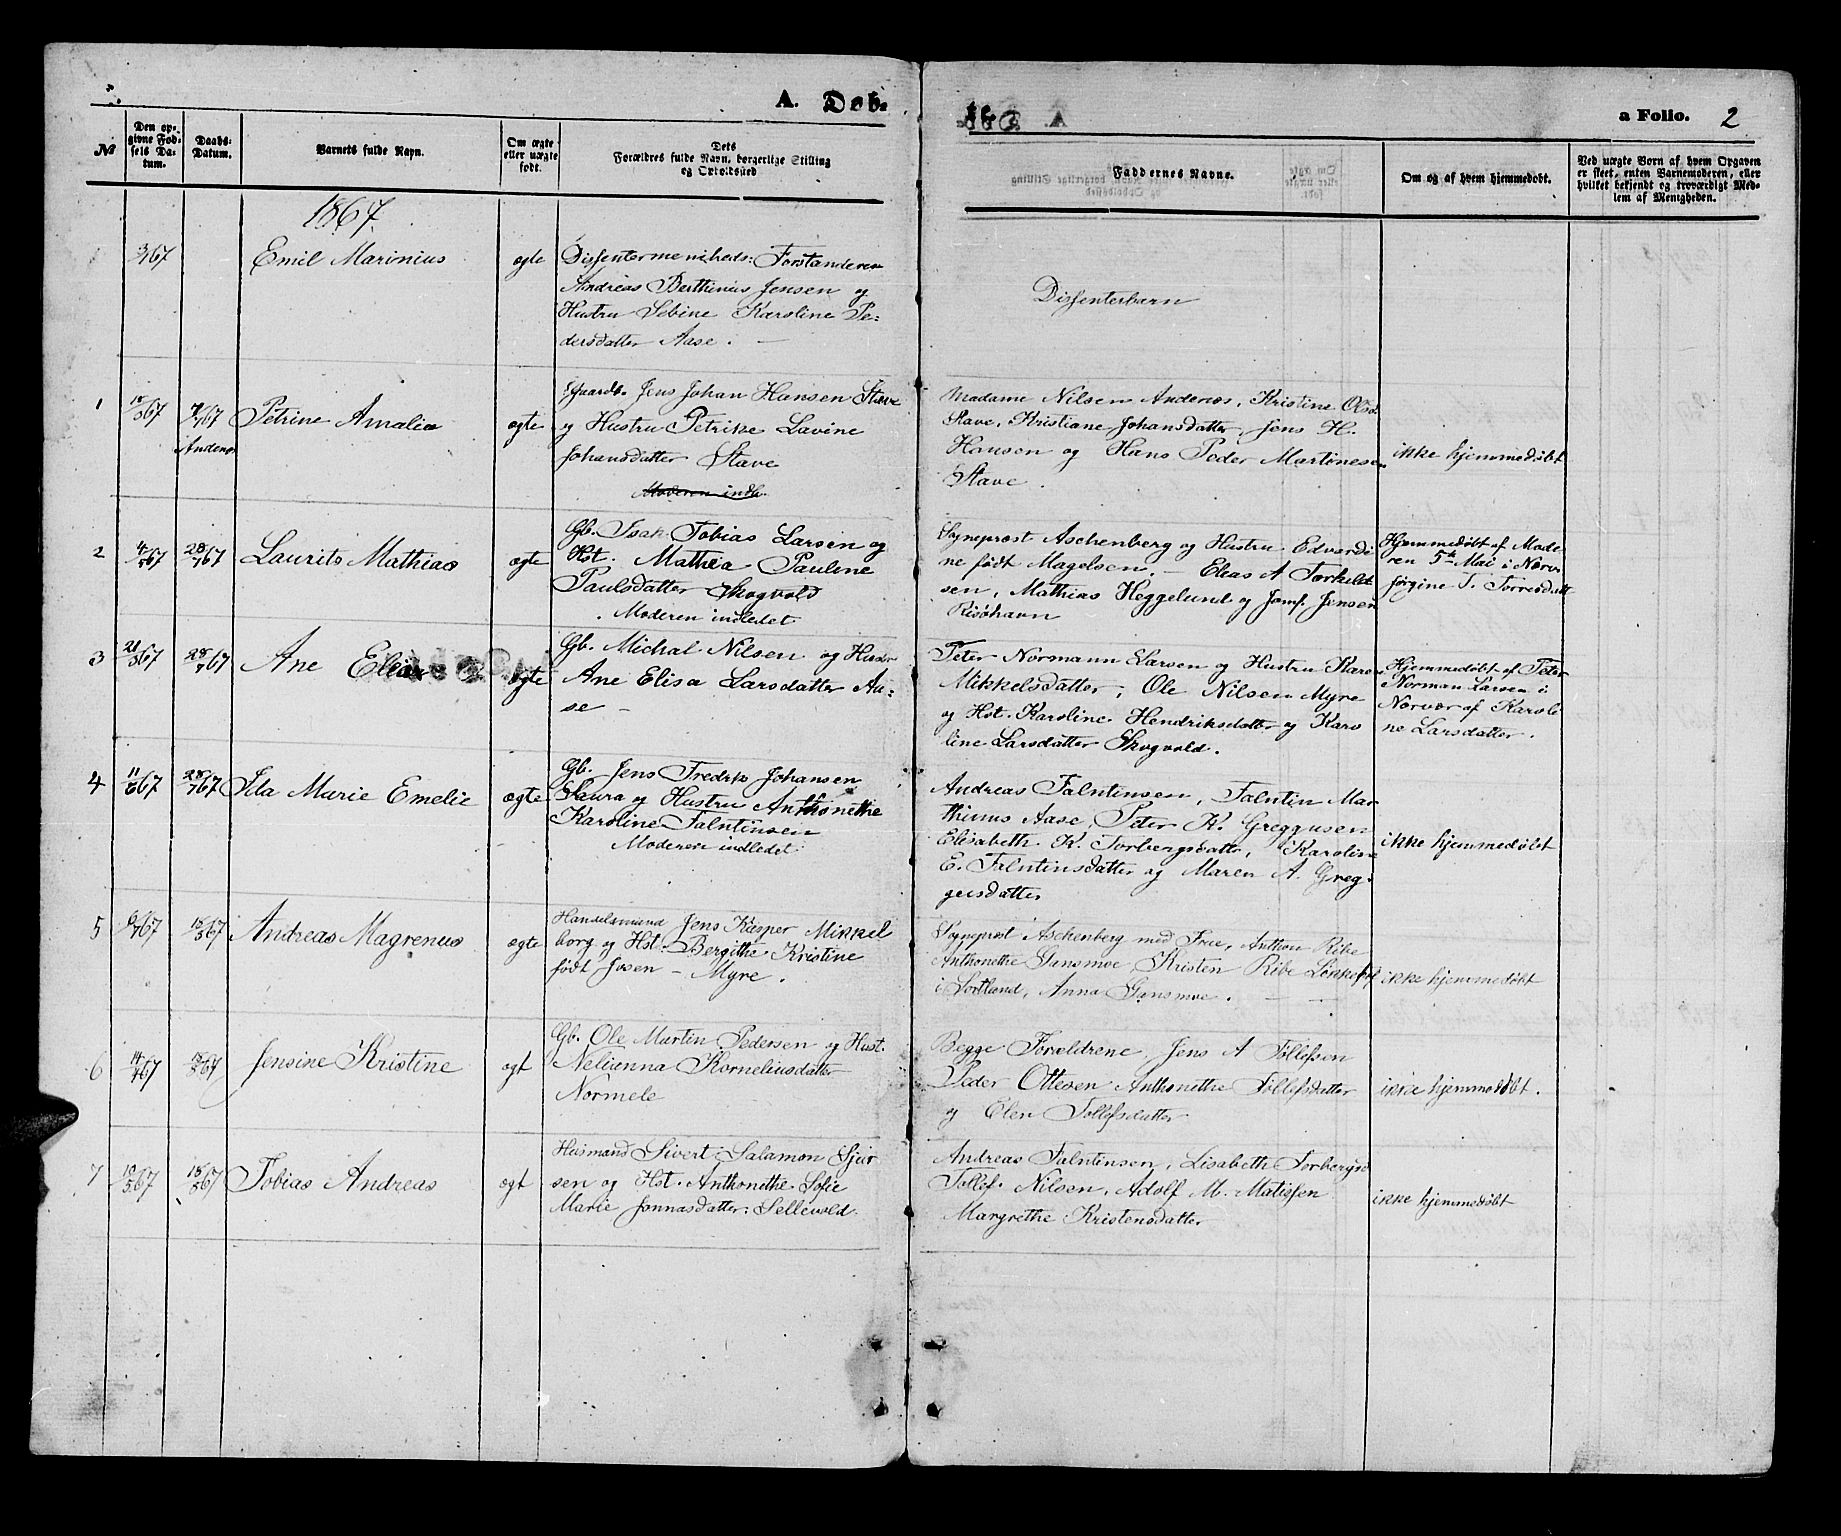 A. Døb-
te.
a Folio. 2
№
Den op-
givne Fød-
sels Da-
tum.
Daabs-
Datum.
Barnets fulde Navn.
Om ægte
eller uægte
født.
Dets
Forældres fulde Navn, borgerlige Stilling
og Opholdssted
Faddernes Navne.
Om og af hvem hjemmedøbt.
Ved uægte Børn af hvem Opgaven
er skeet, enten Barnemoderen, eller
hvilket bekjendt og troværdigt Med-
lem af Menigheden.
1867.
Emil Marinius
ægte
Dissentermenigheds: Forstanderen
Andreas Berthinus Jensen og
Hustru Sebine Karoline Pe-
dersdatter Aase. —
Dissenterbarn
1
Andenes
Petrine Amalia
ægte
Gaardb. Jens Johan Hansen Stave
og Hustru Petrike Lavine
Johansdatter Stave
Moderen indl.
Madame Nilsen Andenes, Kristine Olsd
Stave, Kristiane Johansdatter, Jens H.
Hansen og Hans Peder Martinesen
Stave.
ikke hjemmedøbt
2
4/5 67
28/7 67
Laurits Mathias
ægte
Gb. Isak Tobias Larsen og
Hst. Mathea Pauline
Paulsdatter Skogvold
. Moderen indledet
Sogneprest Aschenberg og Hustru Edvardi-
ne født Magelsen, — Elias A Torkild-
sen, Mathias Heggelund og Jomf. Jensen
Risøhavn
Hjemmedøbt af Mode-
ren 5te Mai i Nærv.
Jørgine T. Torresdatt
3
28/7 67
Ane Elisa
ægte
Gb. Michal Nilsen og Hustr
Ane Elisa Larsdatter Aa-
se —
Peter Normann Larsen og Hustru Karen
Mikkelsdatter, Ole Nilsen Myre
og Hst. Karoline Hendriksdatter og Karo
line Larsdatter Skogvold.
Hjemmedøbt af Peter
Norman Larsen i
Nærvær af Karoli
ne Larsdatter.
4
11/6 67
28/7 67
Ida Marie Emelie
ægte
Gb. Jens Fredrik Johansen
Saura og Hustru Anthonethe
Karoline Falntinsen
Moderen indledet
Andreas Falntinsen, Falntin Mar
thinus Aase, Peter K. Greggusen
Elisabeth K. Torbergsdatter, Karoline
E. Falntinsdatter og Maren A. Greg-
gusdatter
ikke hjemmedøbt
5
18/8 67
Andreas Magrenus
ægte
Handelsmand Jens Kasper Mikkel
borg og Hst. Bergithe Kristine
født Josen — Myre.
Sogneprest Aschenberg med Frue, Anthon Ribe
Anthonethe Gunsmoe, Kristen Ribe
i Sortland, Anna Gunsmoe. — —
ikke hjemmedøbt
6
18/8 67
Jensine Kristine
ægt
Gb. Ole Martin Pedersen og Hust.
Nelianna Korneliusdatter
Normele
Begge Forældrene, Jens A Tollefsen
Peder Ottesen Anthonethe Tollefsdatter
og Elen Tollefsdatter
ikke hjemmedøbt.
7
18/8 67
Tobias Andreas
ægt
Husmand Sivert Salamon Sjur
sen og Hst. Anthonethe Sofie
Marie Jonnasdatter: Sellevold.
Andreas Falntinsen, Lisabeth Torbergsd
Tollef. Nilsen, Adolf M. Matissen
Margrethe Kristensdatter
ikke hjemmedøbt